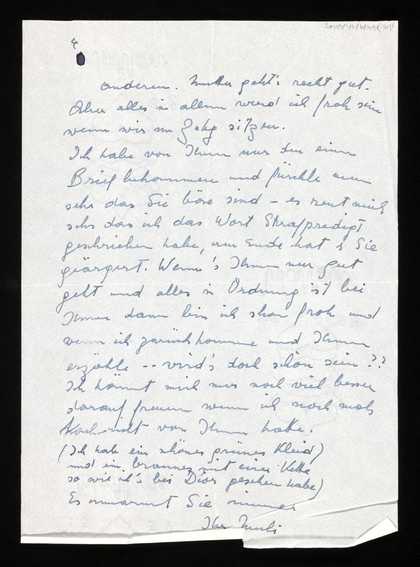 4
anderen. Mutter geht's recht gut.
Aber alles in allem werd ich froh sein
wenn wir im Zug sitzen.
Ich habe von Ihnen nur den einen
Brief bekommen und fürchte nun
sehr das Sie böse sind – es reut mich
sehr das ich das Wort Strafpredigt
geschrieben habe, am Ende hat's Sie
geärgert. Wenn's Ihnen nur gut
geht und alles in Ordnung ist bei
Ihnen dann bin ich schon froh und
wenn ich zurück komme und Ihnen
erzähle -- wird's doch schön sein??
Ich könnt mich nur noch viel besser
darauf freuen wenn ich noch mals
Nachricht von Ihnen hätte.
(Ich hab ein schönes grünes Kleid)
und ein braunes mit einer Kette
so wie ich's bei Dior gesehen habe)
Es umarmt Sie immer
Ihre